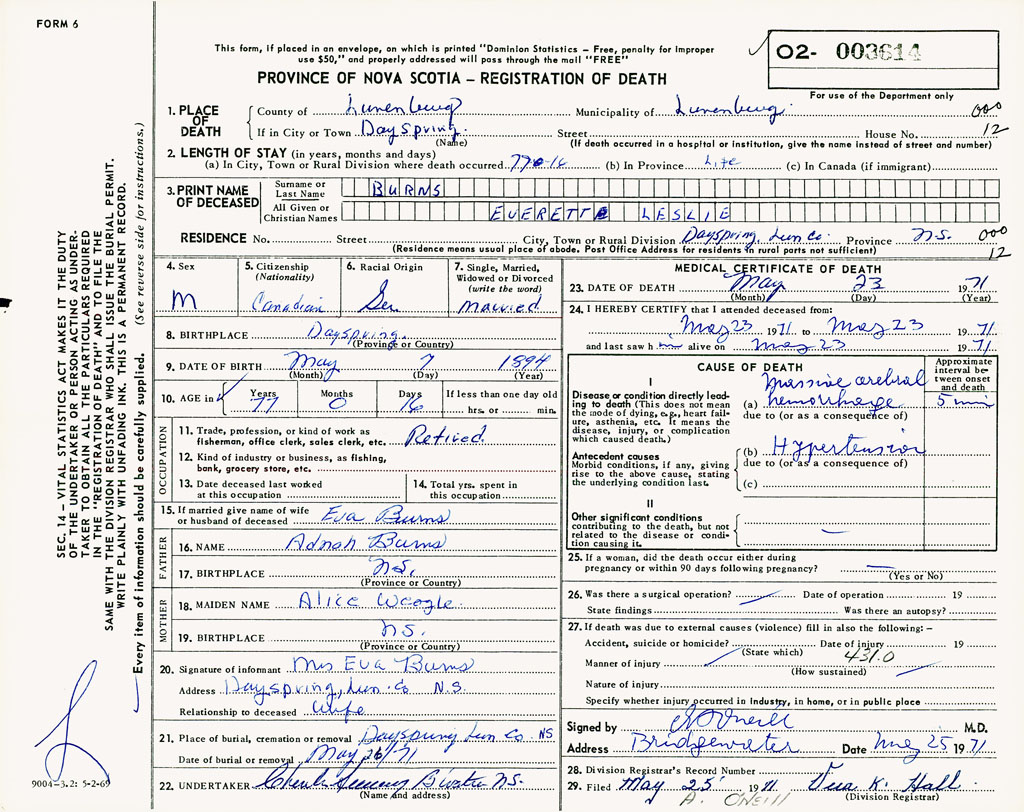 FORM 6
This form, if placed in an envelope, on which is printed "Dominion Statistics – Free, penalty for improper
use $50," and properly addressed will pass through the mail "FREE"
PROVINCE OF NOVA SCOTIA – REGISTRATION OF DEATH
O2- 003614
For use of the Department only
1. PLACE OF DEATH County of Lunenburg Municipality of Lunenburg 000
If in City or Town Dayspring Street House No. 12
(Name) (If death occurred in a hospital or institution, give the name instead of street and number)
2. LENGTH OF STAY (in years, months and days)
(a) In City, Town or Rural Division where death occurred 77-0-16 (b) In Province Life (c) In Canada (if immigrant)
3. PRINT NAME OF DECEASED Surname or Last Name BURNS
All Given or Christian Names EVERETT LESLIE
RESIDENCE No. Street City, Town or Rural Division Dayspring, Lun Co. Province N.S. 000
(Residence means usual place of abode. Post Office Address for residents in rural parts not sufficient) 12
4. Sex M
5. Citizenship (Nationality) Canadian
6. Racial Origin Ger
7. Single, Married, Widowed or Divorced (write the word) Married
8. BIRTHPLACE Dayspring
(Province or Country)
9. DATE OF BIRTH May 7 1894
(Month) (Day) (Year)
10. AGE in Years 77 Months 0 Days 16 If less than one day old
hrs. or min.
OCCUPATION
11. Trade, profession, or kind of work as
fisherman, office clerk, sales clerk, etc. Retired
12. Kind of industry or business, as fishing,
bank, grocery store, etc.
13. Date deceased last worked
at this occupation
14. Total yrs. spent in
this occupation
15. If married give name of wife
or husband of deceased Eva Burns
FATHER
16. NAME Adnah Burns
17. BIRTHPLACE N.S.
(Province or Country)
MOTHER
18. MAIDEN NAME Alice Weagle
19. BIRTHPLACE N.S.
(Province or Country)
20. Signature of informant Mrs Eva Burns
Address Dayspring, Lun. Co N.S.
Relationship to deceased Wife
21. Place of burial, cremation or removal Dayspring Lun Co. NS
Date of burial or removal May 26/71
22. UNDERTAKER N.S.
(Name and address)
MEDICAL CERTIFICATE OF DEATH
23. DATE OF DEATH May 23 1971
(Month) (Day) (Year)
24. I HEREBY CERTIFY that I attended deceased from:
May 23 1971 to May 23 1971
and last saw h im alive on May 23 1971
CAUSE OF DEATH
Approximate interval between onset and death
I
Disease or condition directly leading
to death (This does not mean
the mode of dying, e.g., heart failure,
asthenia, etc. It means the
disease, injury, or complication
which caused death.)
Massive cerebral
(a) hemorrhage 5 min
due to (or as a consequence of)
Antecedent causes
Morbid conditions, if any, giving
rise to the above cause, stating
the underlying condition last.
(b) Hypertension
due to (or as a consequence of)
(c)
II
Other significant conditions
contributing to the death, but not
related to the disease or condition
causing it.
25. If a woman, did the death occur either during
pregnancy or within 90 days following pregnancy?
(Yes or No)
26. Was there a surgical operation? Date of operation 19
State findings Was there an autopsy?
27. If death was due to external causes (violence) fill in also the following: –
Accident, suicide or homicide? Date of injury 19
(State which) 431.0
Manner of injury
(How sustained)
Nature of injury
Specify whether injury occurred in industry, in home, or in public place
Signed by O'Neill M.D.
Address Bridgewater Date May 25 1971
28. Division Registrar's Record Number
29. Filed May 25 1971 Vera K. Hall
(Division Registrar)
A. O'NEILL
SEC. 14 – VITAL STATISTICS ACT MAKES IT THE DUTY
OF THE UNDERTAKER OR PERSON ACTING AS UNDERTAKER
TO OBTAIN ALL THE PARTICULARS REQUIRED
IN THE "REGISTRATION OF DEATH" AND TO FILE THE
SAME WITH THE DIVISION REGISTRAR WHO SHALL ISSUE THE BURIAL PERMIT.
WRITE PLAINLY WITH UNFADING INK. THIS IS A PERMANENT RECORD.
Every item of information should be carefully supplied. (See reverse side for instructions.)
9004-3.2: 5-2-69